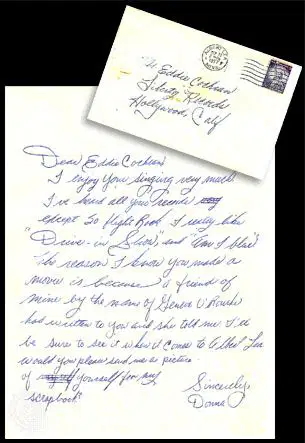 Mr Eddie Cochran
Liberty Records
Hollywood, Calif
Dear Eddie Cochran
I enjoy your singing very much
I've heard all your records
except So flight Rock I really like
"Drive-in Show" and "Am I blue"
The reason I know you made a
movie is because a friend of
mine by the name of Geneva O'Rourke
had written to you and she told me I'd
be sure to see it when it comes to Albert Lea
would you please send me a picture
of yourself for my
scrapbook?
Sincerely,
Donna